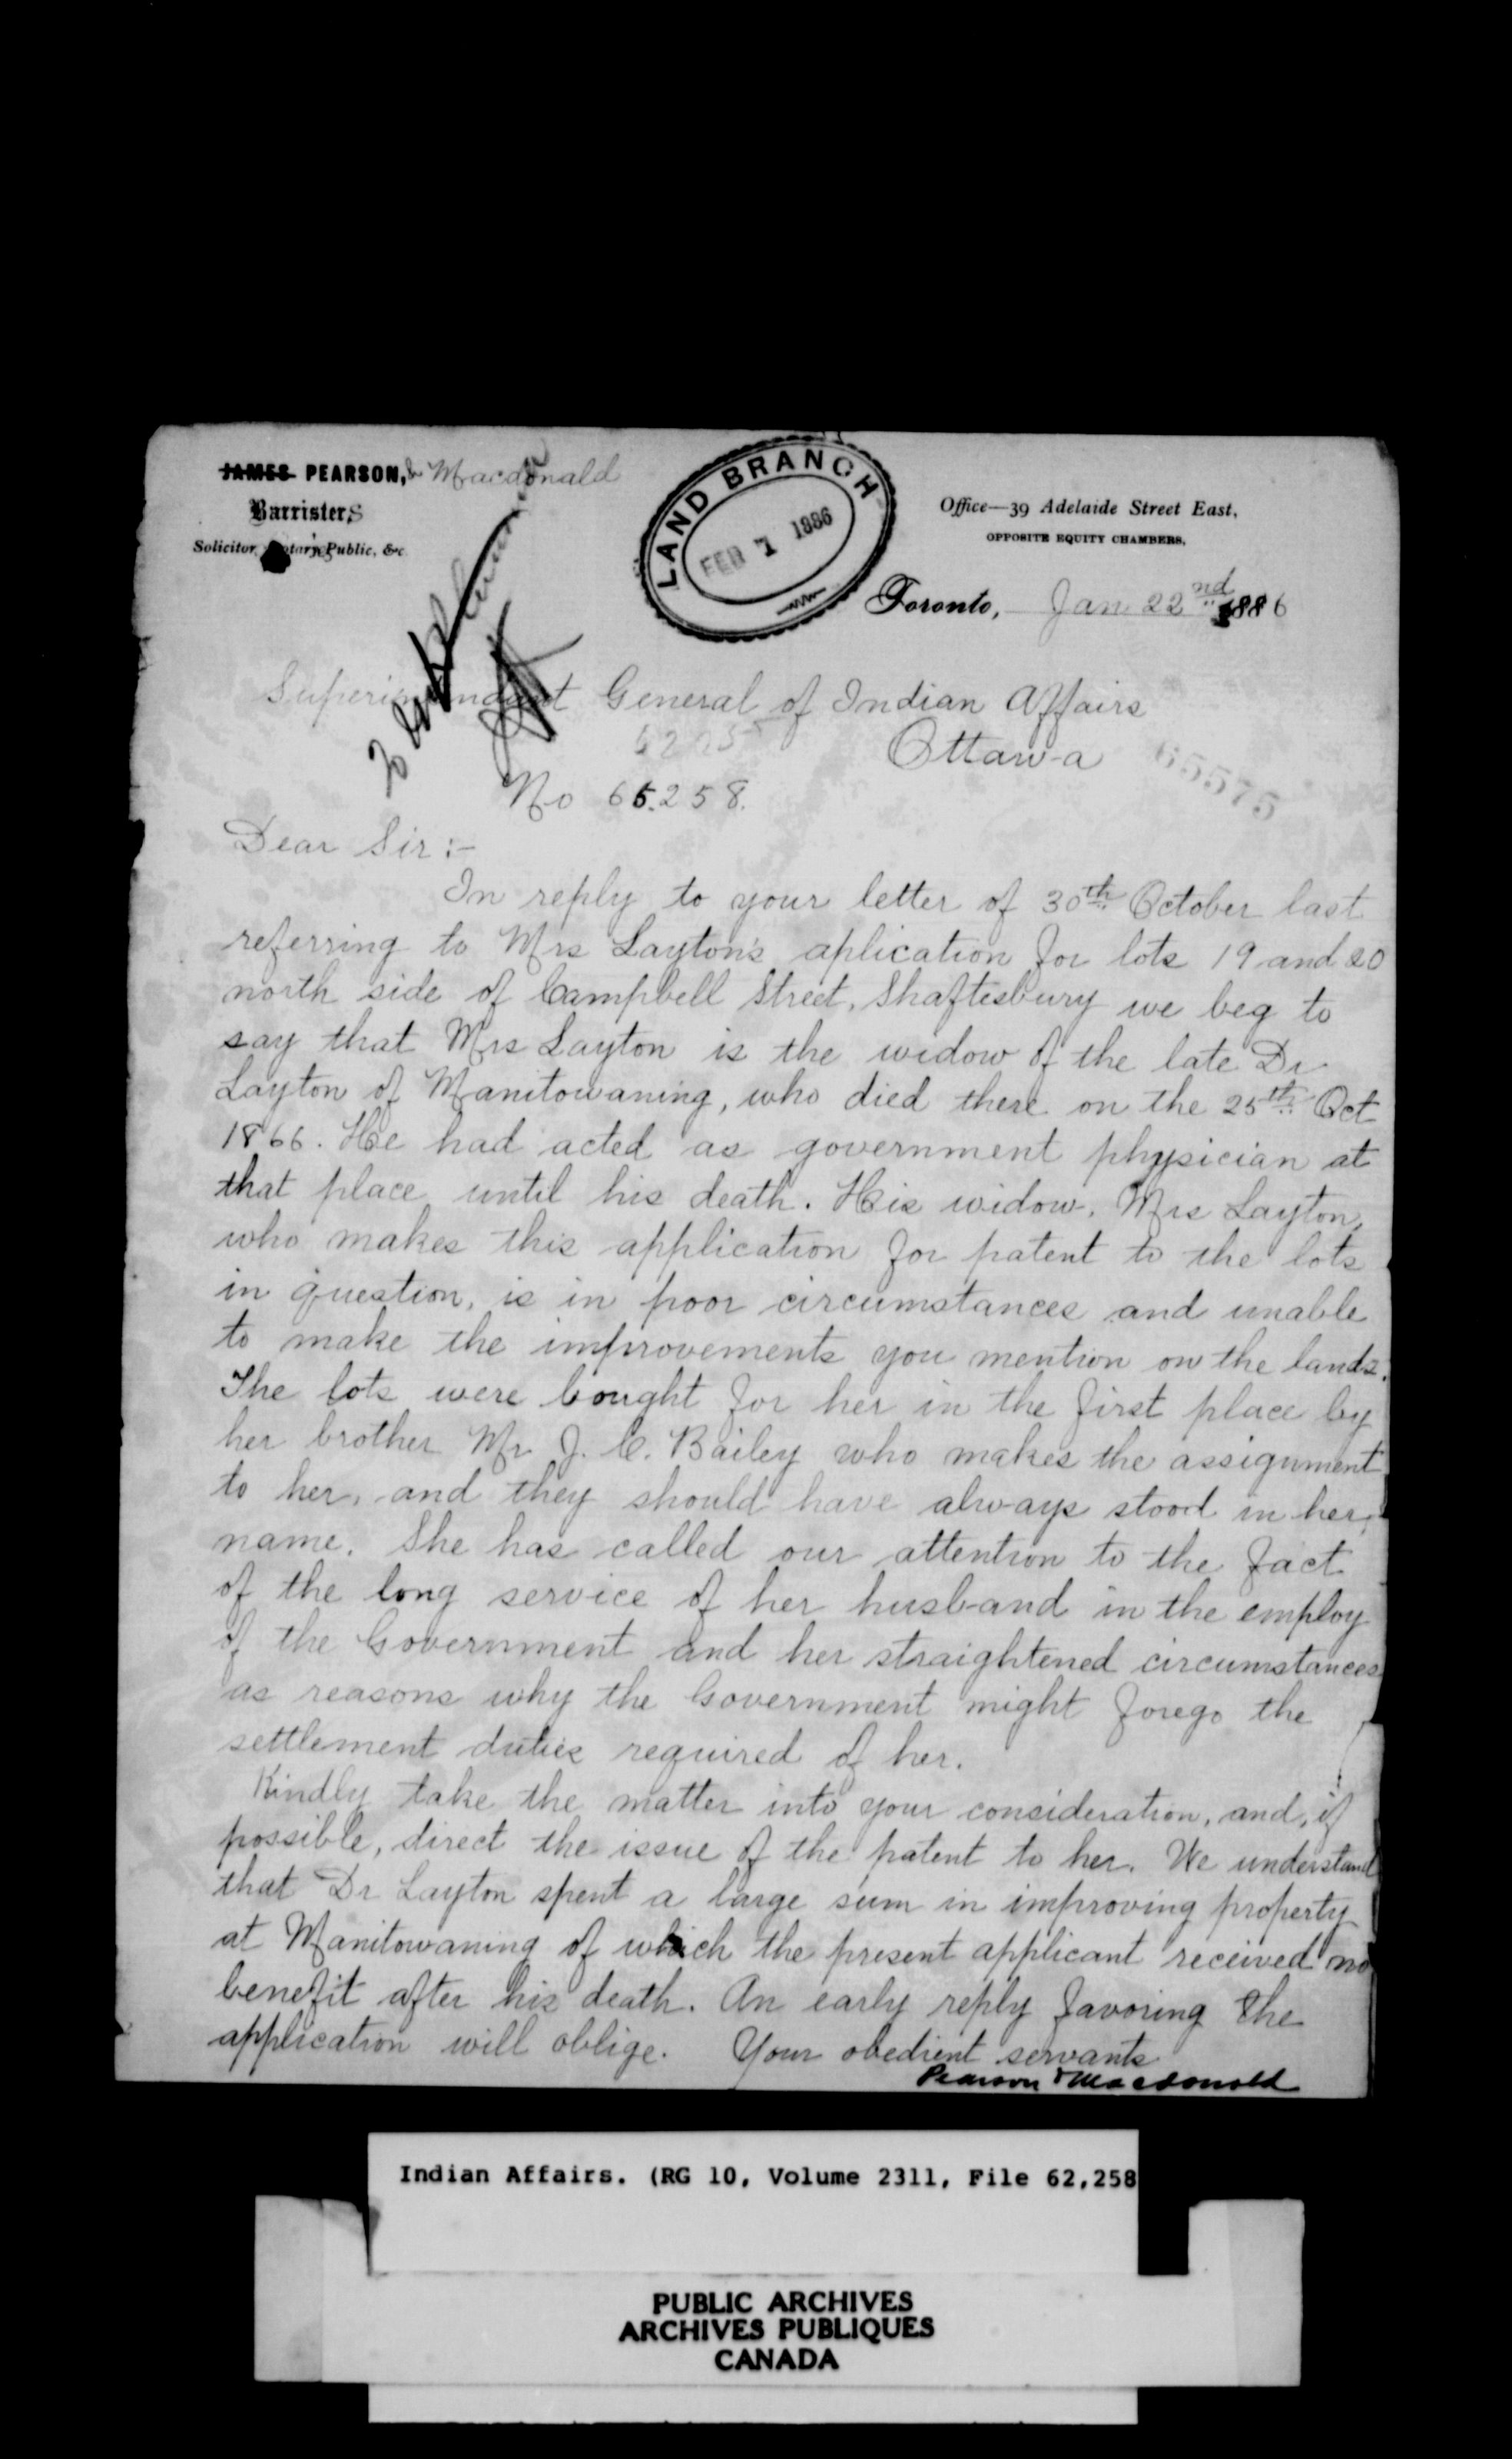 JAMES PEARSON, & Macdonald
Barristers
Solicitor, Notary Public, &c
LAND BRANCH
FEB 1 1886
Office—39 Adelaide Street East,
OPPOSITE EQUITY CHAMBERS,
Toronto, Jan 22nd 1886
Superintendent General of Indian Affairs
Ottawa
65575
No 65.258.
Dear Sir:-
In reply to your letter of 30th October last
referring to Mrs Layton's aplication for lots 19 and 20
north side of Campbell Street, Shaftesbury we beg to
say that Mrs Layton is the widow of the late Dr
Layton of Manitowaning, who died there on the 25th Oct
1866. He had acted as government physician at
that place until his death. His widow, Mrs Layton,
who makes this application for patent to the lots
in question, is in poor circumstances and unable
to make the improvements you mention on the lands.
The lots were bought for her in the first place by
her brother Mr J. C. Bailey who makes the assignment
to her, and they should have always stood in her
name. She has called our attention to the fact
of the long service of her husband in the employ
of the Government and her straightened circumstances
as reasons why the Government might forego the
settlement duties required of her.
Kindly take the matter into your consideration, and, if
possible, direct the issue of the patent to her. We understand
that Dr Layton spent a large sum in improving property
at Manitowaning of which the present applicant received no
benefit after his death. An early reply favoring the
application will oblige. Your obedient servants
Pearson & Macdonald
Indian Affairs. (RG 10, Volume 2311, File 62,258
PUBLIC ARCHIVES
ARCHIVES PUBLIQUES
CANADA